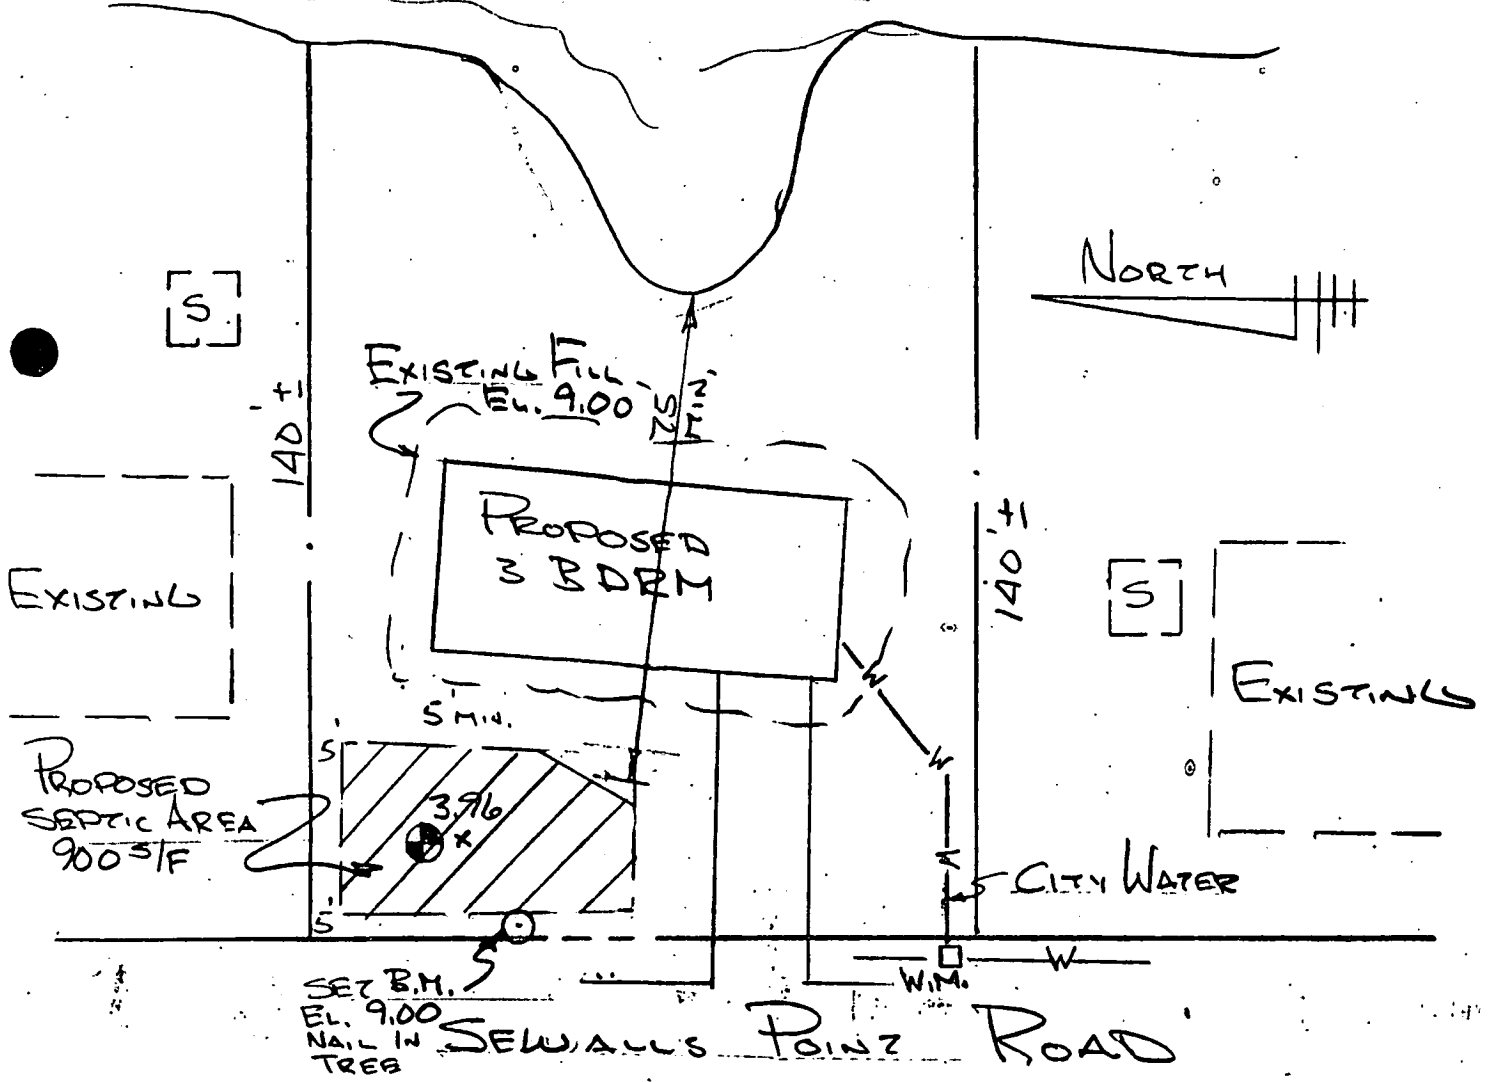 NORTH
S
EXISTING FILL
EL. 9.00
75'
MIN.
140'±
PROPOSED
3 BDRM
EXISTING
140'±
S
EXISTING
5' MIN.
5'
PROPOSED
SEPTIC AREA
900 S/F
3.96
x
5'
W
W
W
CITY WATER
W.M.
W
SET B.M.
EL. 9.00
NAIL IN
TREE
SEWALLS POINT ROAD